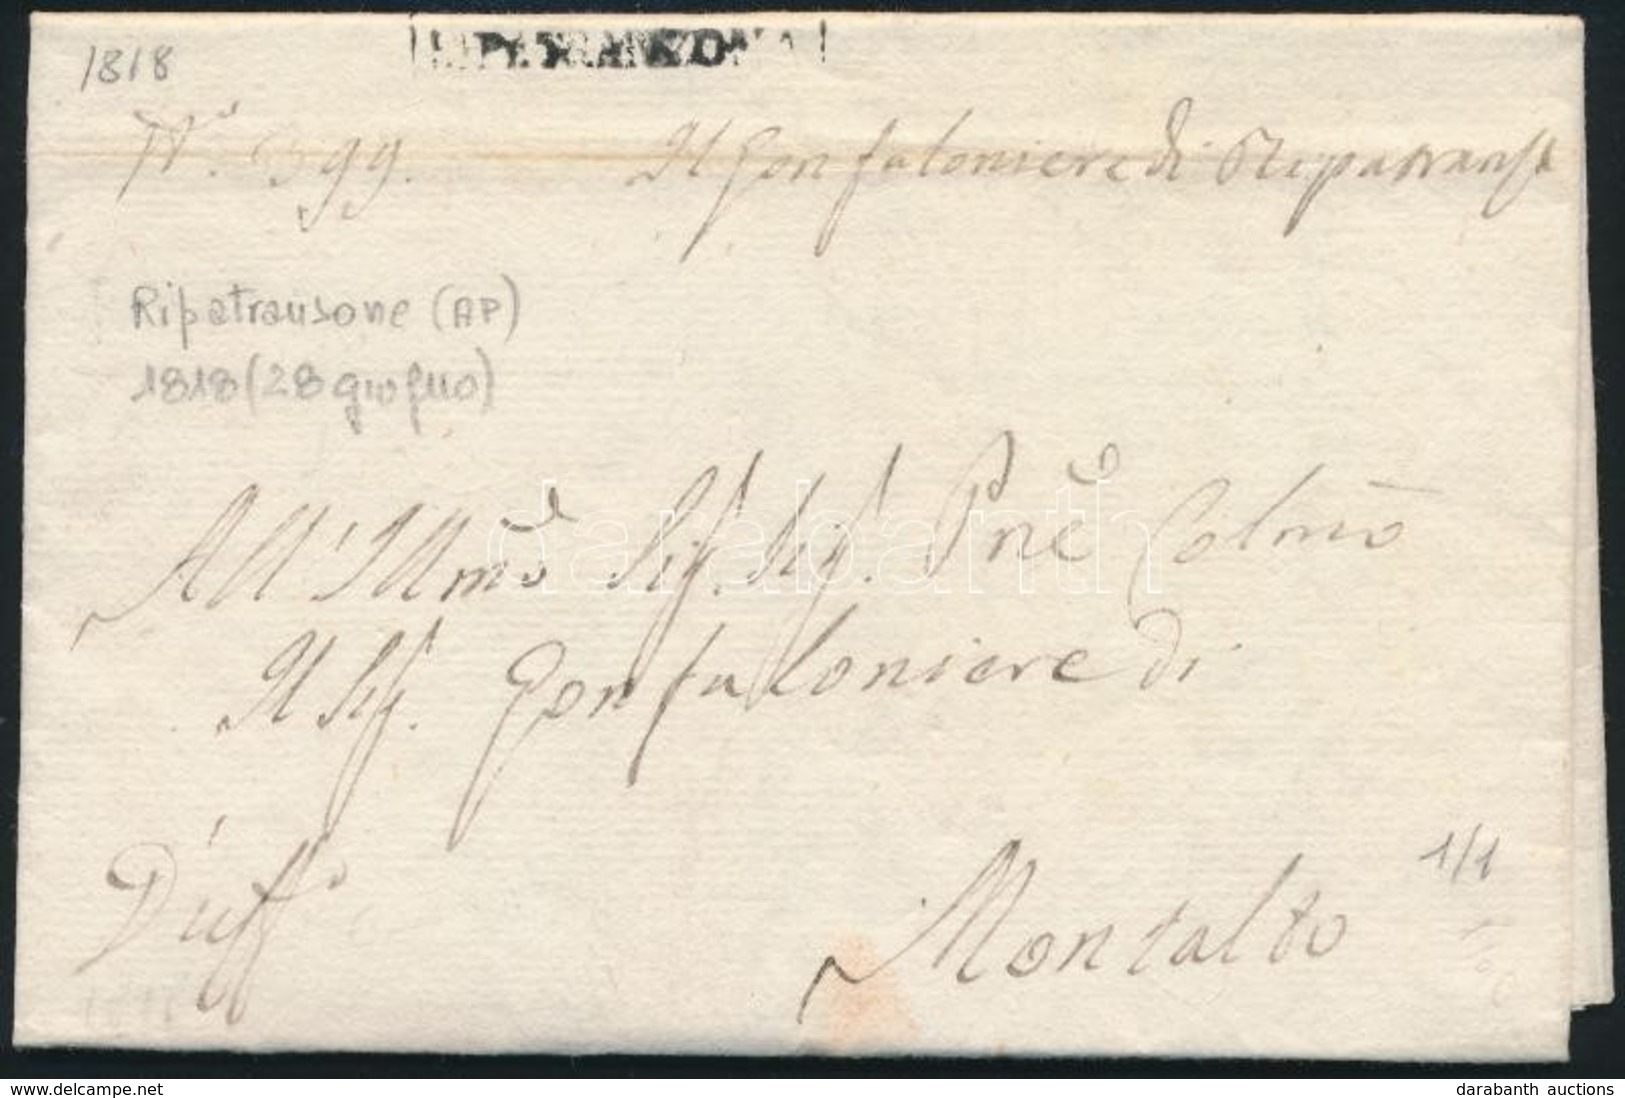 1818
Il Gonfaloniere di Ripatransa
Ripatransone (AP)
1818 (28 giugno)
All'Illmo Sig. Sig. Pne Colmo
Il Sig. Gonfaloniere di
D'uff°
Montalto
1/1
darabanth
www.delcampe.net
darabanth auctions